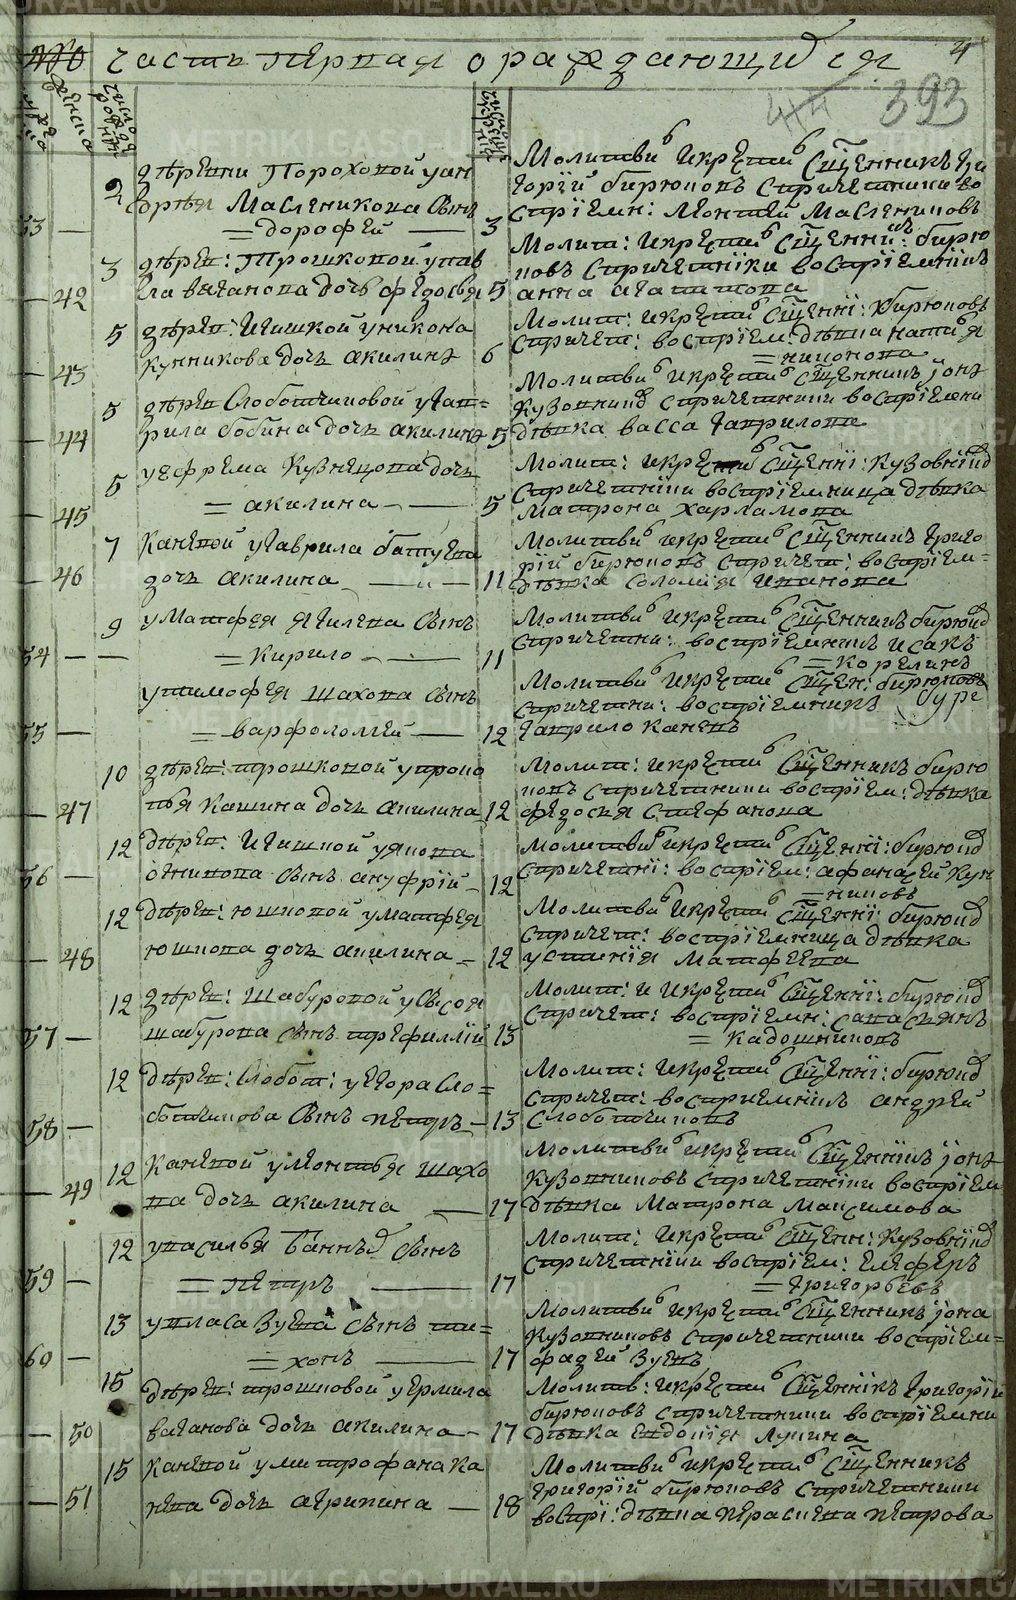 часть первая о раждающихся
4
393
деревни Пороховой у ан
2 дрѣя Масленикова сынъ
53 — = дорофей — 3
Молитви и крести Священникъ Гри
горїй бирюковъ с причетники во
спрїемн: Леонтей Маслениковъ
3 дерев: Трошковой у пав
— 42 ла ваганова дочь федосья 5
Молит: и крести Священни: бирю
ковъ с причетнїки воспрїемнїцъ
анна агатитова
5 дерев: Ичишкой у никона
— 43 кунникова дочь акилина 6
Молит: и крести Священнї: бирюковъ
с причет: воспрїем: дѣвка наталья
= никонова
5 дерев Слоботчиковой у гав=
— 44 рила бобина дочь акилина 5
Молитви и крести Священникъ їона
Кузовниковъ с причетники воспрїемни
дѣвка васса гаврилова
5 у ефрема Кузнецова дочь
— 45 = акилина — 5
Молит: и крести Священнї: Кузовнїков
с причетнїки воспрїемница дѣвка
Матрона Харламова
7 Каневой у гаврила батуева
— 46 дочь акилина — 11
Молитви и крести Священникъ Григо
рїй бирюковъ с причет: воспрїем=
дѣвка Соломїя иванова
9 у Матфея Ягилева сынъ
54 — — = Кирило — 11
Молитви и крести Священникъ бирюков
с причетни: воспрїемникъ исакъ
= Корелинъ
у тимофея шахова сынъ
55 — = варфоломей — 12
Молитви и крести Священ: бирюковъ
с причетни: воспрїемникъ
гаврило Каневъ
10 дерев: трошковой у проко
— 47 пья Кашина дочь акилина 12
Молит: и крести Священникъ бирю
ковъ с причетники воспрїем: дѣвка
федосья Стефанова
12 дерев: Ичишкой у якова
56 — огникова сынъ ануфрїй — 12
Молитви и крести Священнї: бирюков
с причетнї: воспрїем: афанасей Кун
= никовъ
12 дерев: юшковой у матфея
— 48 юшкова дочь акилина = 12
Молитви и крести Священнї: бирюков
с причет: воспрїемница дѣвка
устинїя Матфеева
12 дерев: Шабуровой у сысоя
57 — шабурова сынъ трефиллїй 13
Молит: и крести Священнї: бирюков
с причет: воспрїемн: савасьянъ
= Кадошниковъ
12 дерев: Слобот: у егора Сло=
58 — ботчикова сынъ петръ — 13
Молит: и крести Священнї: бирюков
с причет: восприемнїкъ андрей
Слоботчиковъ
12 Каневой у леонтья шахо
— 49 ва дочь акилина — 17
Молитви и крести Священнїкъ їона
Кузовниковъ с причетнїки воспрїем
дѣвка Матрона Максимова
12 у василья Банных сынъ
59 — = петръ — 17
Молит: и крести Священн: Кузовнїков
с причетнїки воспрїем: елеферъ
= григорьевъ
13 у власа Зуева сынъ ти=
60 — = хонъ — 17
Молитви и крести Священникъ їона
Кузовниковъ с причетники воспрїем=
фадей Зуевъ
15 дерев: трошковой у ермила
— 50 ваганова дочь акилина — 17
Молитв: и крести Священнїкъ Григорїй
бирюковъ с причетники воспрїемни
дѣвка евдокїя Лукина
15 Каневой у митрофана ка
— 51 нева дочь агрипина — 18
Молитви и крести Священникъ
Григорїй бирюковъ с причетники
воспрї: дѣвка Параскева петрова
METRIKI.GASO-URAL.RU